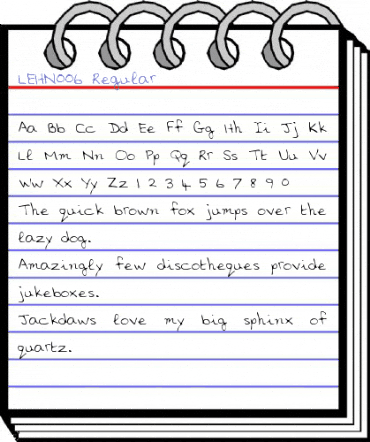 LEHN006 Regular
Aa Bb Cc Dd Ee Ff Gg Hh Ii Jj Kk
Ll Mm Nn Oo Pp Qq Rr Ss Tt Uu Vv
Ww Xx Yy Zz 1 2 3 4 5 6 7 8 9 0
The quick brown fox jumps over the
lazy dog.
Amazingly few discotheques provide
jukeboxes.
Jackdaws love my big sphinx of
quartz.